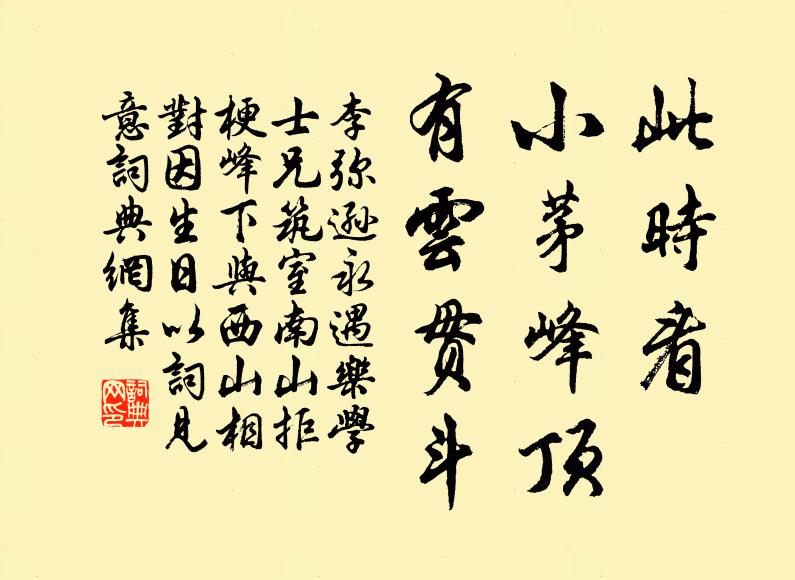 此時看
小茅峰頂
有雲貫斗
李弥遜永遇樂學
士兄筑室南山拒
梗峰下與西山相
對因生日以詞見
意詞典網集
詞典网印